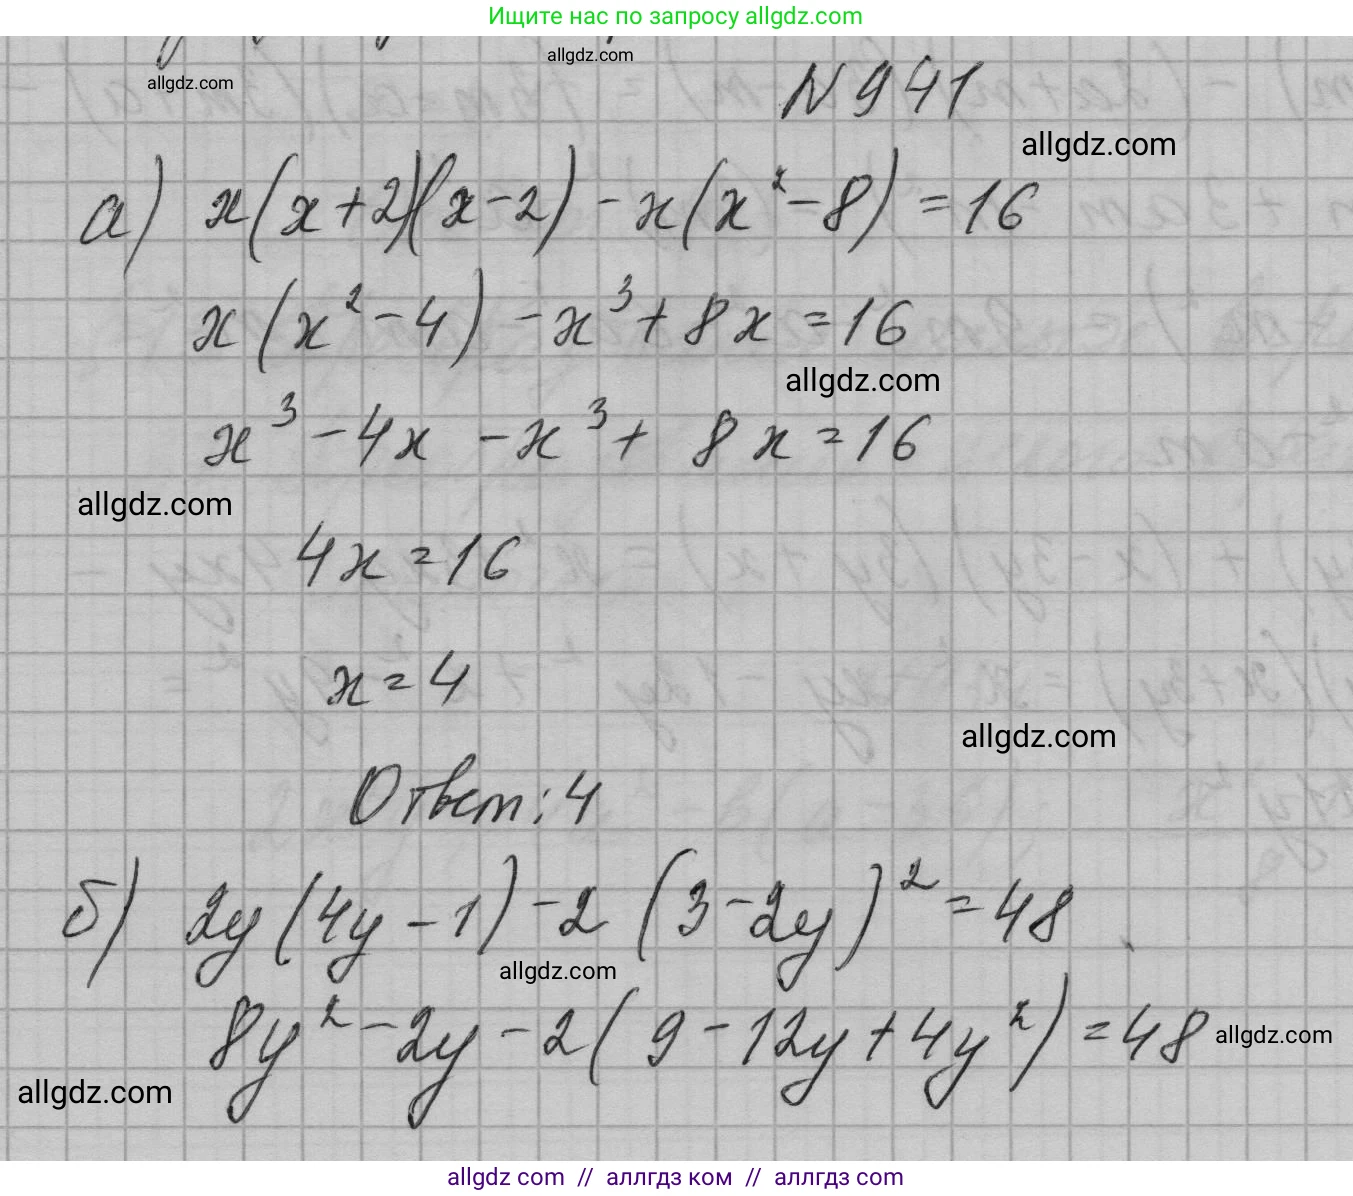 Ищите нас по запросу allgdz.com
allgdz.com
allgdz.com
N 941
allgdz.com
а) x(x+2)(x-2) - x(x²-8) = 16
x(x²-4) - x³ + 8x = 16
allgdz.com
x³ - 4x - x³ + 8x = 16
allgdz.com
4x = 16
x = 4
allgdz.com
Ответ: 4
б) 2y(4y-1) - 2(3-2y)² = 48
allgdz.com
8y² - 2y - 2(9 - 12y + 4y²) = 48
allgdz.com
allgdz.com
allgdz com // аллгдз ком // аллгдз com